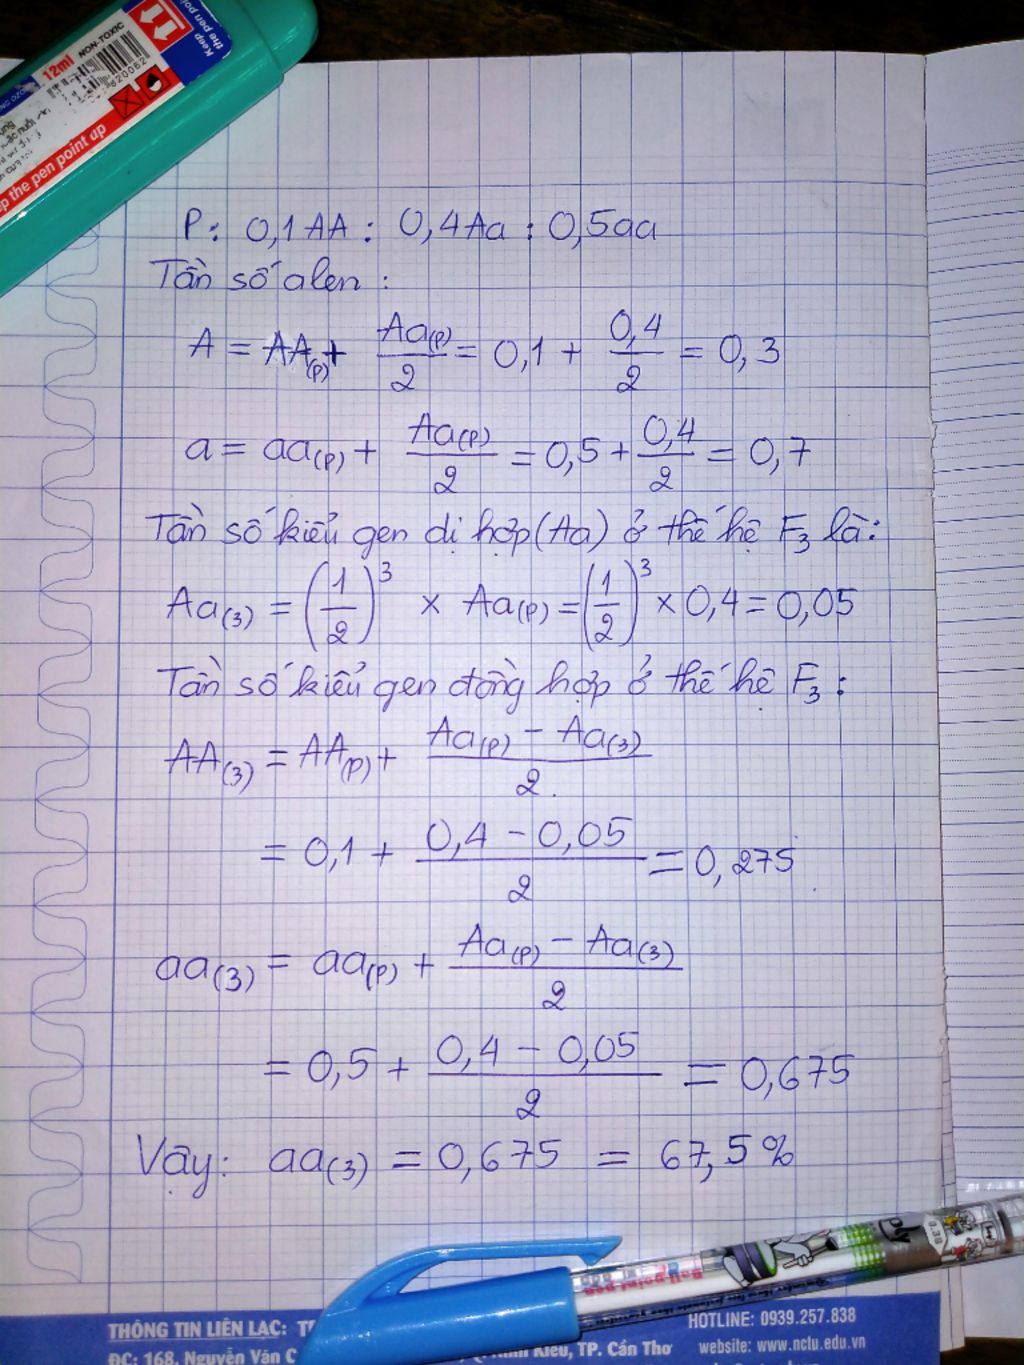 Keep
the pen poi
12ml NON-TOXIC
the pen point up
P: 0,1AA : 0,4Aa : 0,5aa
Tần số alen :
A = AA(P) + Aa(P)/2 = 0,1 + 0,4/2 = 0,3
a = aa(P) + Aa(P)/2 = 0,5 + 0,4/2 = 0,7
Tần số kiểu gen dị hợp (Aa) ở thế hệ F3 là:
Aa(3) = (1/2)^3 × Aa(P) = (1/2)^3 × 0,4 = 0,05
Tần số kiểu gen đồng hợp ở thế hệ F3 :
AA(3) = AA(P) + (Aa(P) − Aa(3))/2
= 0,1 + (0,4 − 0,05)/2 = 0,275
aa(3) = aa(P) + (Aa(P) − Aa(3))/2
= 0,5 + (0,4 − 0,05)/2 = 0,675
Vậy: aa(3) = 0,675 = 67,5%
THÔNG TIN LIÊN LẠC:
HOTLINE: 0939.257.838
ĐC: 168, Nguyễn Văn C
Kiều, TP. Cần Thơ
website: www.nctu.edu.vn